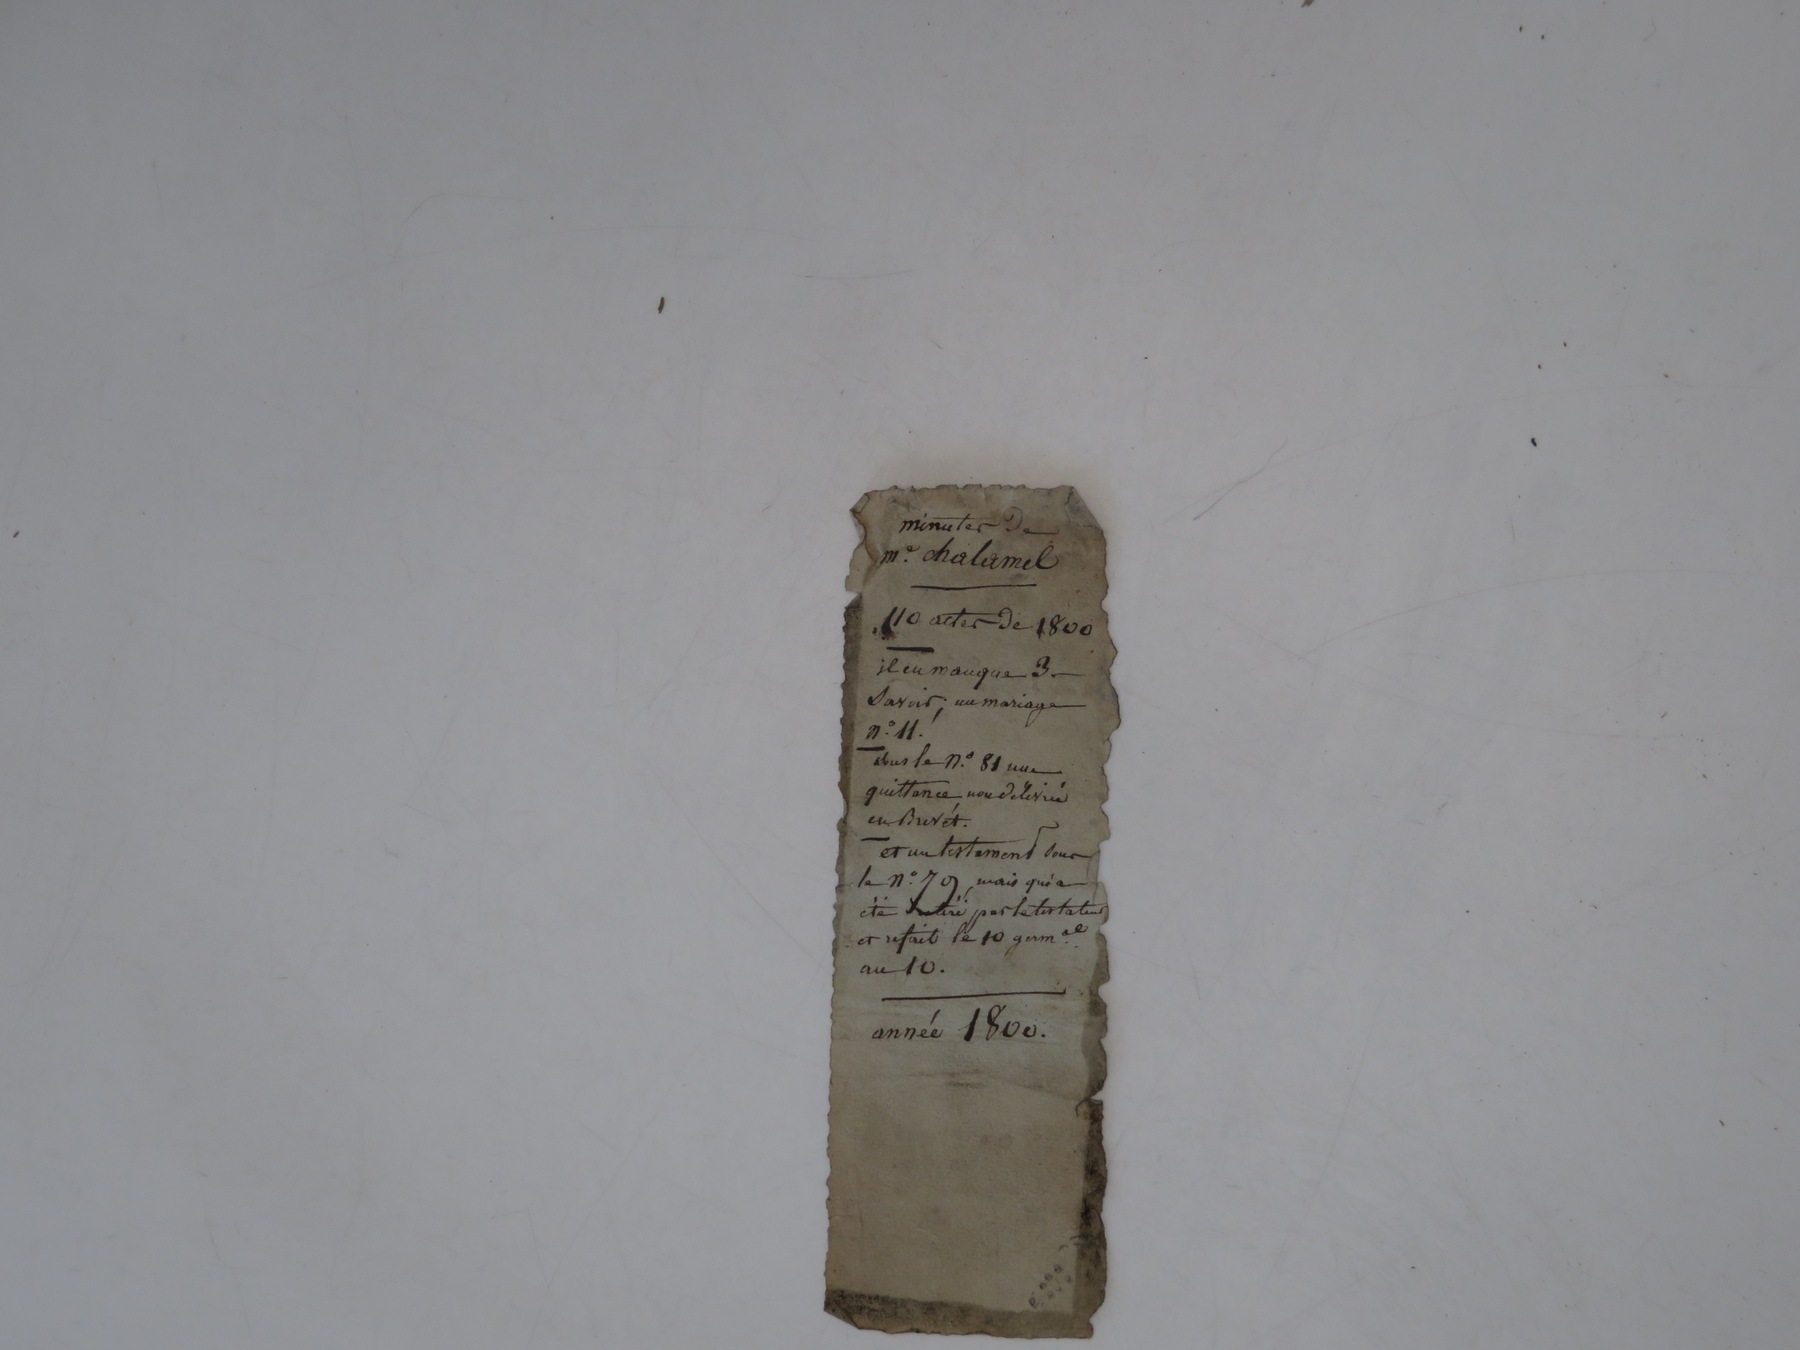 minutes de
me. chalamel
110 actes de 1800
il en manque 3.
Savoir; un mariage
n.o 11.
sous le n.o 81 une
quittance, non délivrée
en Brevét.
et un testament sous
le n.o 79, mais qui a
été retiré par le testateur
et refait le 10 germ.al
an 10.
année 1800.